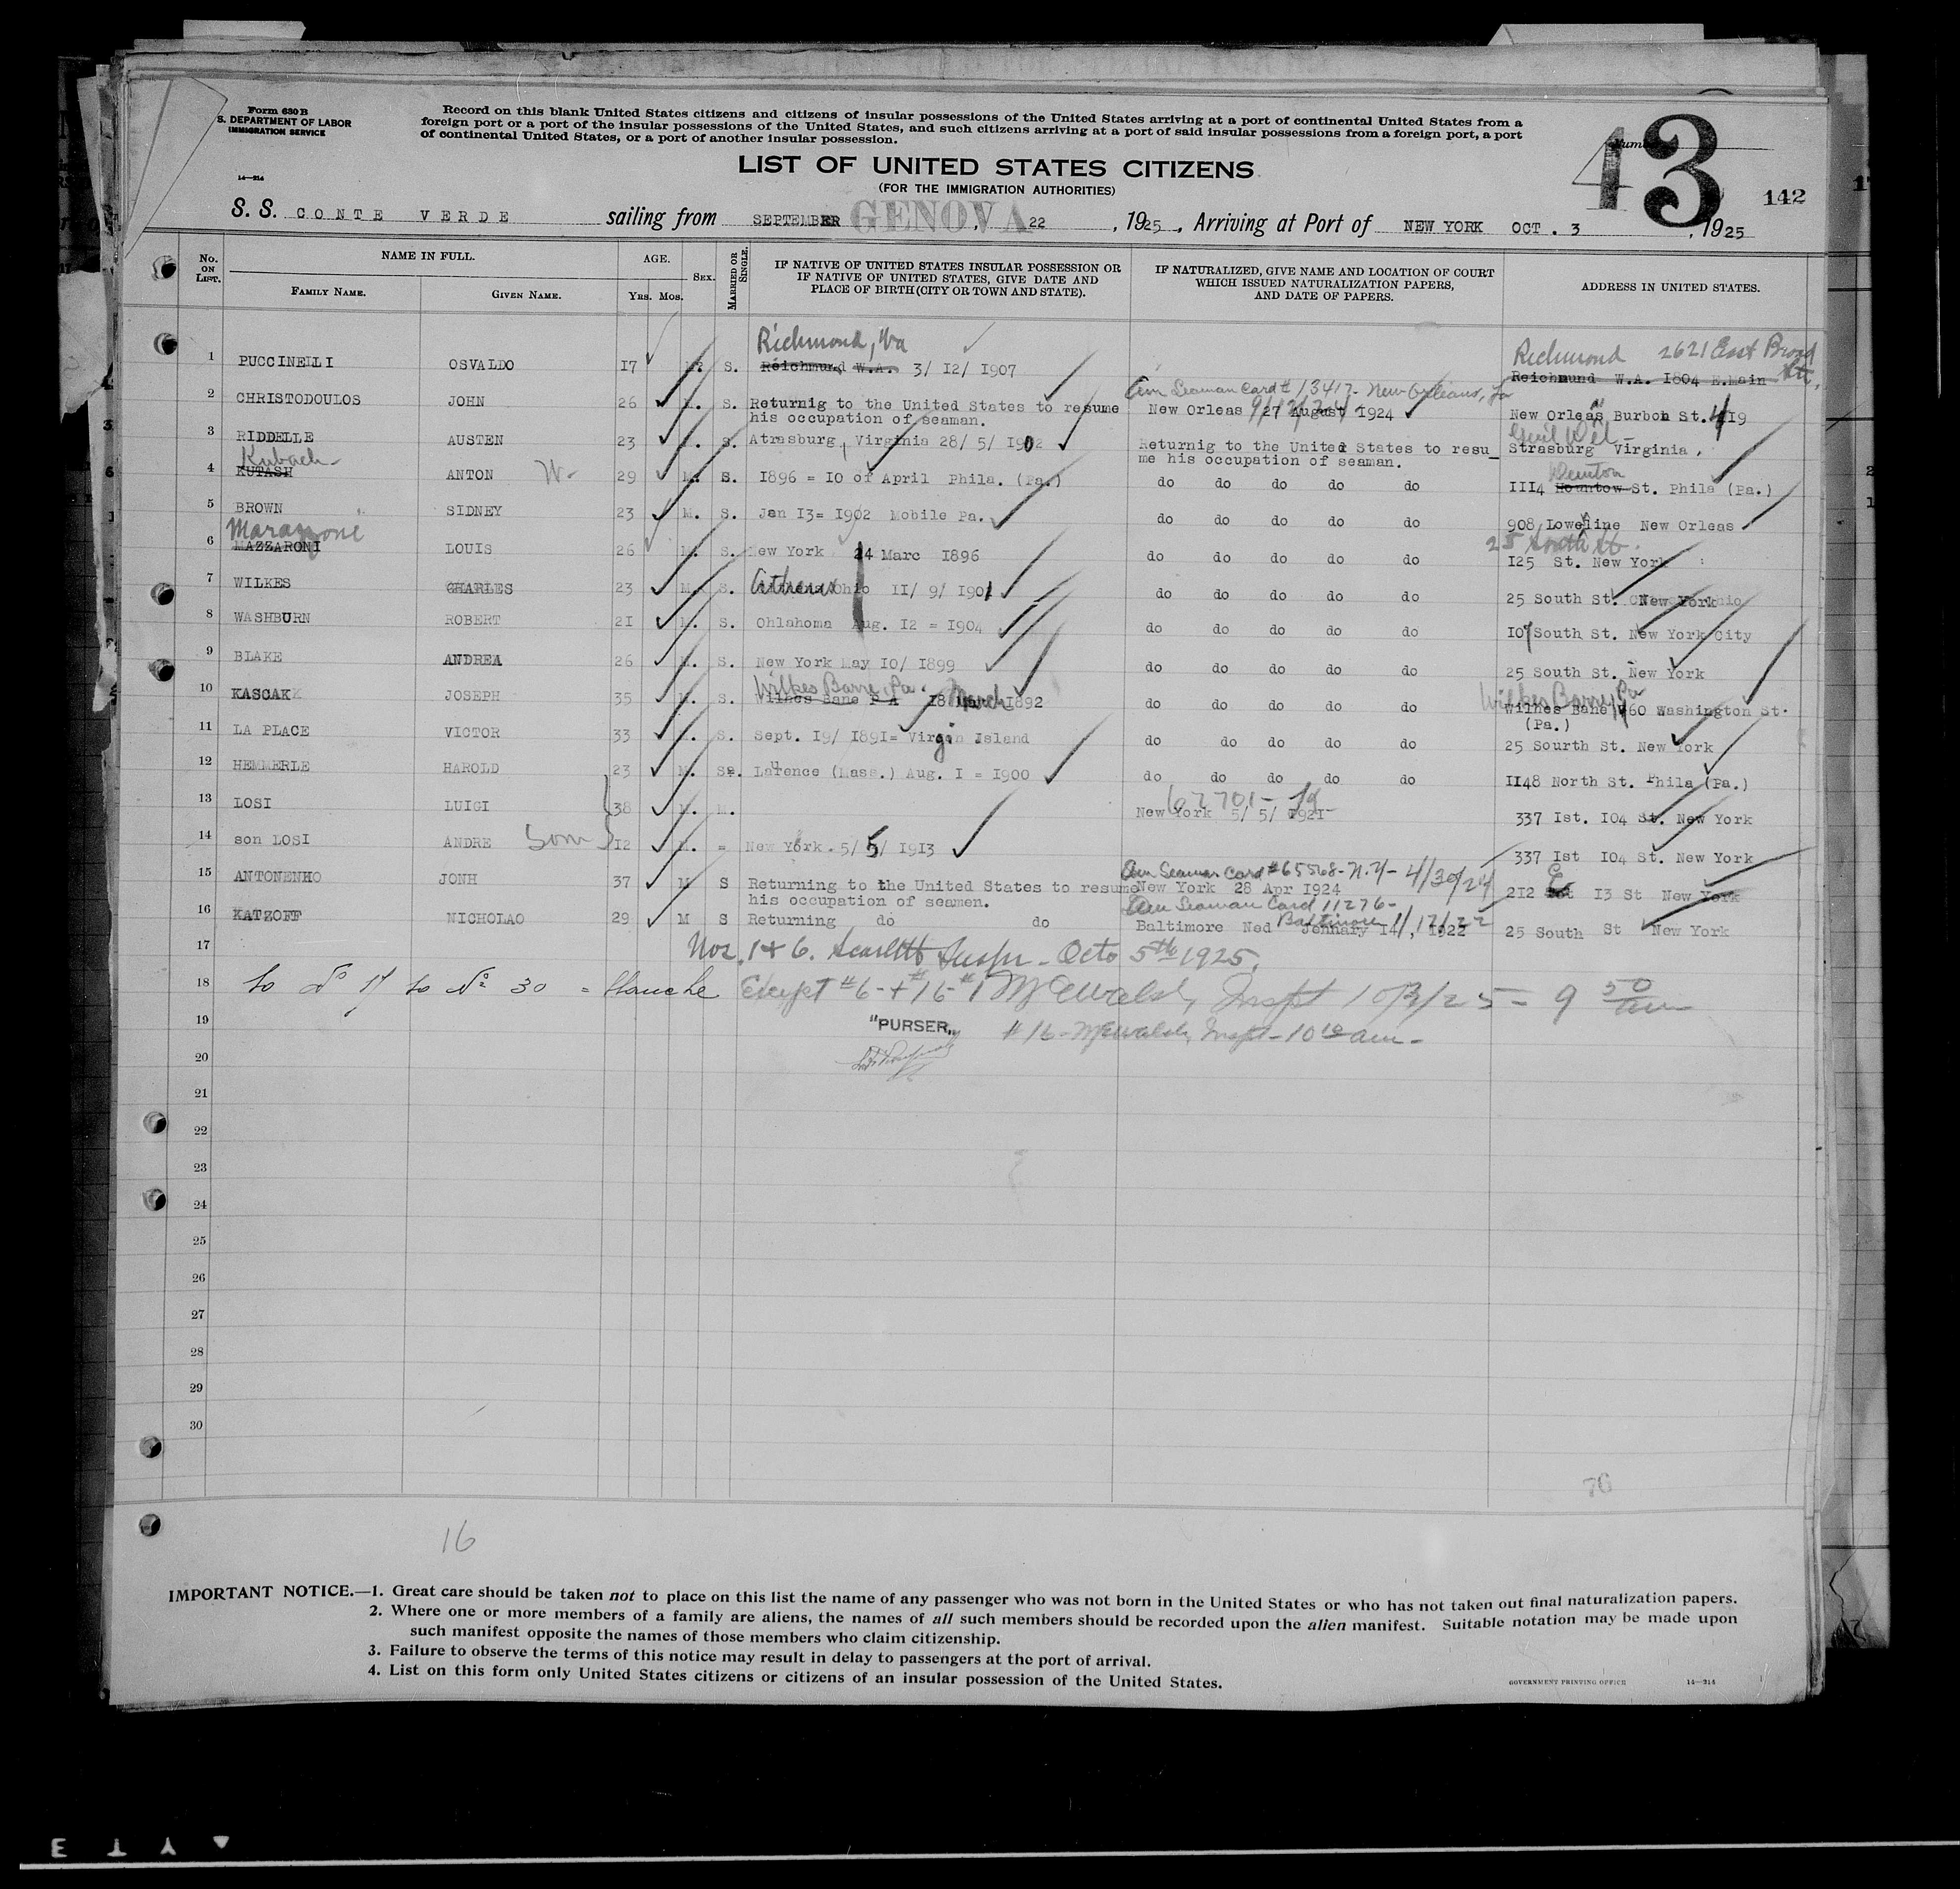 Form 630 B
S. DEPARTMENT OF LABOR
IMMIGRATION SERVICE
14—214
Record on this blank United States citizens and citizens of insular possessions of the United States arriving at a port of continental United States from a
foreign port or a port of the insular possessions of the United States, and such citizens arriving at a port of said insular possessions from a foreign port, a port
of continental United States, or a port of another insular possession.
43
142
LIST OF UNITED STATES CITIZENS
(FOR THE IMMIGRATION AUTHORITIES)
S. S. CONTE VERDE sailing from SEPTEMBER GENOVA, 22, 1925, Arriving at Port of NEW YORK OCT. 3, 1925
No. ON LIST. NAME IN FULL. AGE. SEX. MARRIED OR SINGLE. IF NATIVE OF UNITED STATES INSULAR POSSESSION OR IF NATIVE OF UNITED STATES, GIVE DATE AND PLACE OF BIRTH (CITY OR TOWN AND STATE). IF NATURALIZED, GIVE NAME AND LOCATION OF COURT WHICH ISSUED NATURALIZATION PAPERS, AND DATE OF PAPERS. ADDRESS IN UNITED STATES.
FAMILY NAME. GIVEN NAME. YRS. MOS.
Richmond, Va Richmond 2621 East Broad St.
1 PUCCINELLI OSVALDO 17 S. Reichmund W.A. 3/ 12/ 1907 Reichmund W.A. 1804 E.Main
Am Seaman Card # 13417- New Orleans, La
2 CHRISTODOULOS JOHN 26 S. Returnig to the United States to resume his occupation of seaman. New Orleas 27 August 1924 New Orleas Burbon St. 419
3 RIDDELLE AUSTEN 23 S. Atrasburg, Virginia 28/ 5/ 1902 Returnig to the United States to resu_ me his occupation of seaman. Strasburg Virginia.
Kubach
4 KUTASH ANTON W. 29 M. S. 1896 = 10 of April Phila. (Pa.) do do do do do 1114 St. Phila (Pa.)
5 BROWN SIDNEY 23 M. S. Jan 13= 1902 Mobile Pa. do do do do do 908 Loweline New Orleas
Marazzoni 25 South St.
6 MAZZARONI LOUIS 26 M. S. New York 24 Marc 1896 do do do do do 125 St. New York
7 WILKES CHARLES 23 M. S. Athens Ohio 11/ 9/ 1901 do do do do do 25 South St. New York
8 WASHBURN ROBERT 21 M. S. Ohlahoma Aug. 12 = 1904 do do do do do 107 South St. New York City
9 BLAKE ANDREA 26 M. S. New York May 10/ 1899 do do do do do 25 South St. New York
Wilkes Barre, Pa. March Wilkes Barre, Pa
10 KASCAK JOSEPH 35 M. S. Wilhes Bane P A 18 1892 do do do do do Wilhes Bane 60 Washington St. (Pa.)
11 LA PLACE VICTOR 33 M. S. Sept. 19/ 1891= Virgin Island do do do do do 25 Sourth St. New York
12 HEMMERLE HAROLD 23 M. S. Laurence (Mass.) Aug. 1 = 1900 do do do do do 1148 North St. Phila (Pa.)
13 LOSI LUIGI 38 M. M. New York 5/ 5/ 1921 337 Ist. 104 St. New York
14 son LOSI ANDRE Son 12 M. = New York - 5/ 5/ 1913 337 Ist 104 St. New York
Am Seaman Card #65568- N.Y- 4/30/24
15 ANTONENKO JONH 37 M S Returning to the United States to resume his occupation of seamen. New York 28 Apr 1924 212 E 13 St New York
Am Seaman Card 11276- Baltimore 1/17/22
16 KATZOFF NICHOLAO 29 M S Returning do do Baltimore Ned Jennary 14, 1922 25 South St New York
17 Nos. 1 + 6. Scarlett Inspr - Octo 5th 1925.
18 to No 17 to No 30 = blanche Except #6 - + #16 - #1 McEwalsh, Inspt 10/3/25 = 9 50 am
19 "PURSER" #16 - McEwalsh, Inspt - 10 10 am -
20
21
22
23
24
25
26
27
28
29
30
76
16
IMPORTANT NOTICE.—1. Great care should be taken not to place on this list the name of any passenger who was not born in the United States or who has not taken out final naturalization papers.
2. Where one or more members of a family are aliens, the names of all such members should be recorded upon the alien manifest. Suitable notation may be made upon
such manifest opposite the names of those members who claim citizenship.
3. Failure to observe the terms of this notice may result in delay to passengers at the port of arrival.
4. List on this form only United States citizens or citizens of an insular possession of the United States.
GOVERNMENT PRINTING OFFICE 14—214